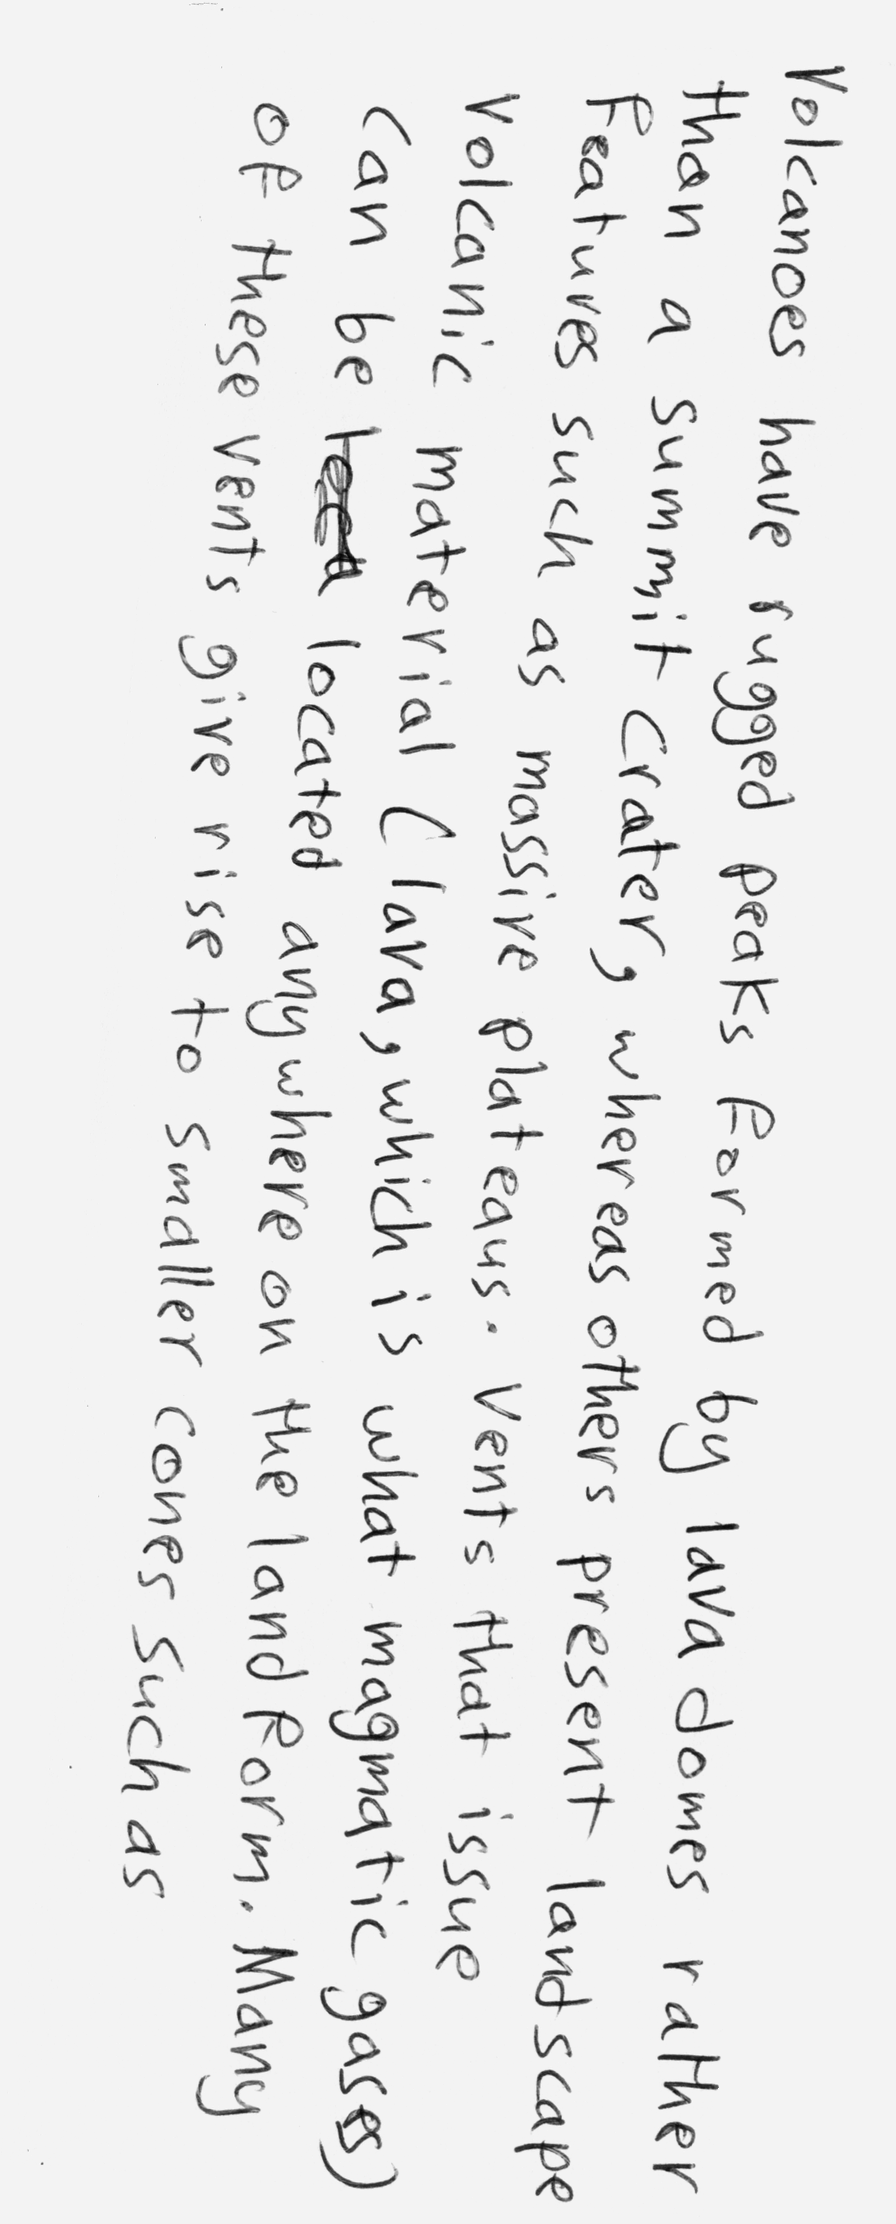 Volcanoes have rugged peaks formed by lava domes rather
than a summit crater, whereas others present landscape
features such as massive plateaus. Vents that issue
volcanic material (lava, which is what magmatic gases)
can be located anywhere on the landform. Many
of these vents give rise to smaller cones such as